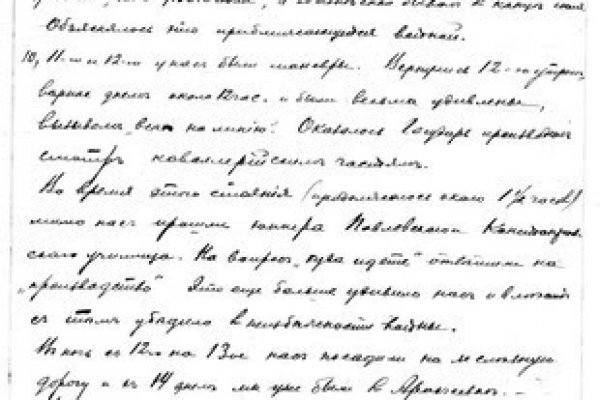 Объяснялось это приближающейся войной.
10, 11-го и 12-го у нас были маневры. Вернулись 12-го утром,
вернее днем около 12 час. и были весьма удивлены,
вызовом „всех на линию“. Оказалось Государь производит
смотр кавалерийским частям.
Во время этого стояния (продолжалось около 1½ часов)
мимо нас прошли юнкера Павловского
училища. На вопрос „куда идете“ ответили на
„производство“ Это еще больше удивило нас и
с этим убедило в неизбежности войны.
В ночь с 12го на 13ое нас посадили на железную
дорогу и 14 днем мы уже были в